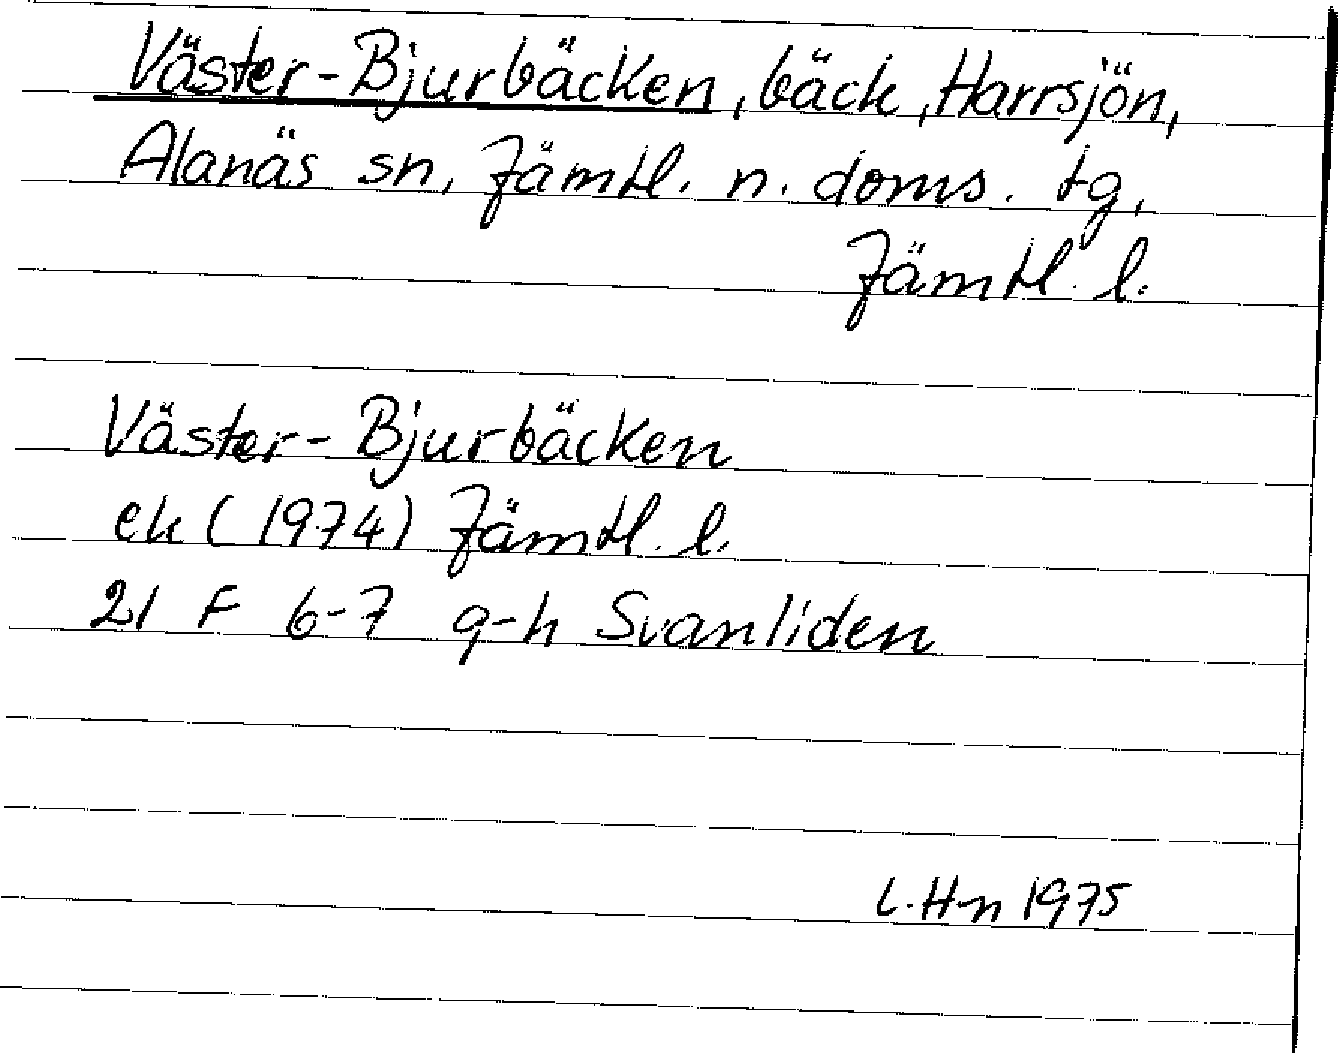 Väster-Bjurbäcken, bäck, Harrsjön,
Alanäs sn, Jämtl. n. doms. tg,
Jämtl. l.
Väster-Bjurbäcken
ek (1974) Jämtl. l.
21 F 6-7 g-h Svanliden
L.H-n 1975